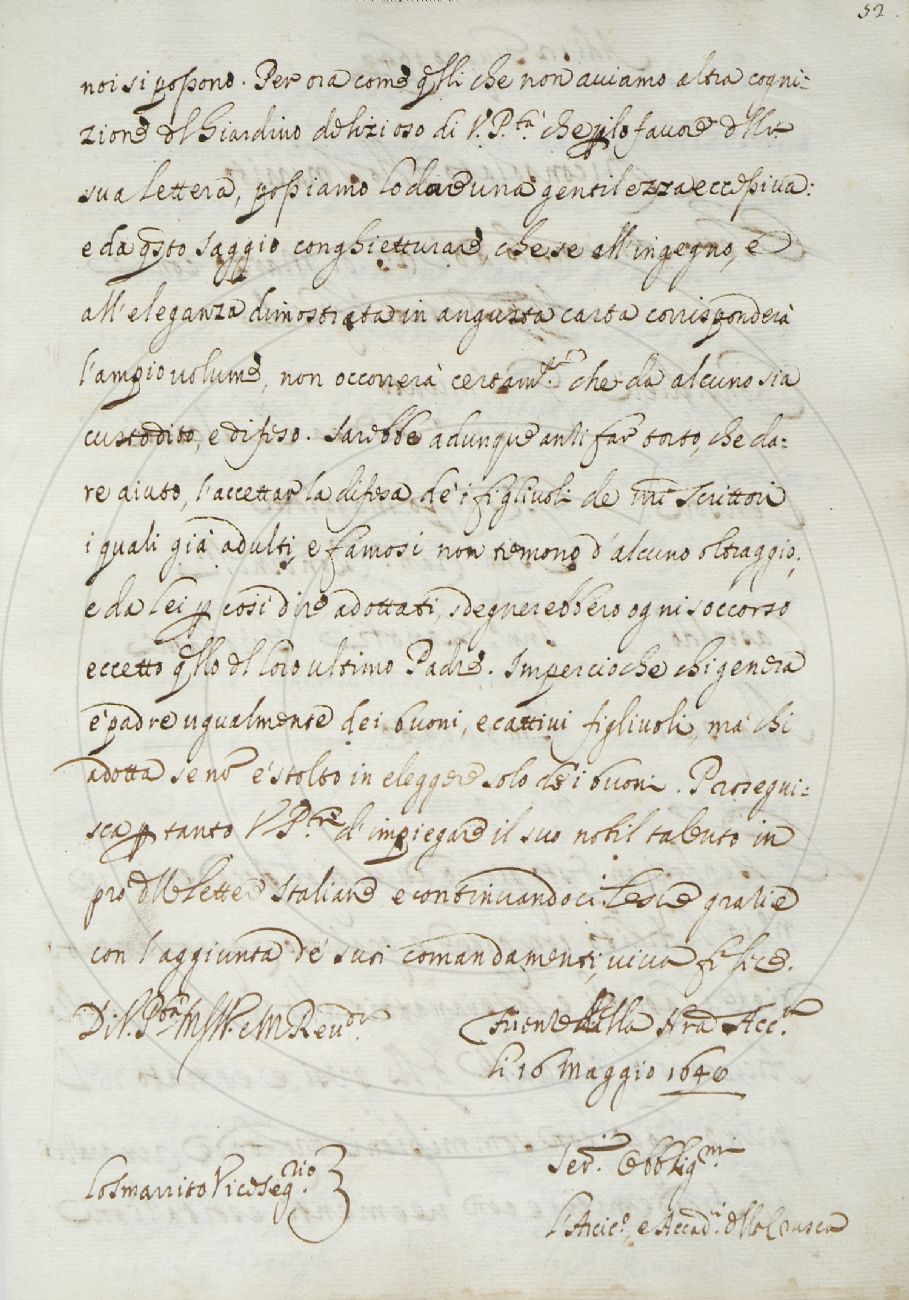 52
noi si possono. Per ora come qlli che non aviamo altra cogni=
zione dl Giardino delizioso di V. P.tà che p lo favore dlla
sua lettera, possiamo lodare una gentilezza eccessiva:
e da qsto saggio conghietturare che se all'ingegno, e
all'eleganza dimostrata in angusta carta corrisponderà
l'ampio volume, non occorrerà certam.te che da alcuno sia
custodito, e difeso. Sarebbe adunque anzi far torto, che da=
re aiuto, l'accettar la difesa de' i figlivoli de scrittori
i quali già adulti, e famosi non temono d'alcuno oltraggio,
e da Lei p così dire adottati, sdegnerebbero ogni soccorso
eccetto qllo dl loro ultimo Padre. Impercioche chi genera
è padre ugualmente dei buoni, e cattivi figlivoli, ma chi
adotta se nō è stolto in eleggere solo de' i buoni. Prosegui=
sca p tanto V P.tà d'impiegare il suo nobil talento in
prò dlle lettere Italiane e continuandoci le sue grazie
con l'aggiunta de' suoi comandamenti, viva felice.
Di V. P.tà M Ill. e M Reu.di
dalla Nrā Acc.a
li 16 Maggio 1640
Ser.i Obblig.mi
Lo Smarrito Vicoseg.rio
L'Arcic.o, e Accad.i dlla Crusca